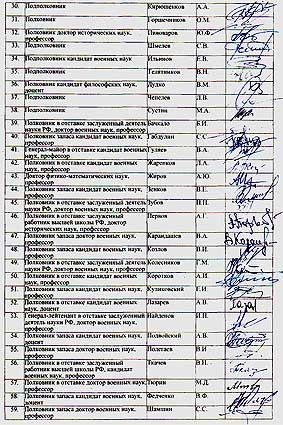 30. Подполковник Кирюшенков А.А.
31. Подполковник Горшечников О.М.
32. Полковник доктор исторических наук, профессор Пивоваров Ю.Ф.
33. Подполковник Шмелев С.В.
34. Подполковник кандидат военных наук Ильинов Е.В.
35. Подполковник Телятников В.Н.
36. Полковник кандидат философских наук, доцент Лудко В.М.
37. Подполковник Чепелев Д.В.
38. Подполковник Сустин М.А.
39. Полковник в отставке заслуженный деятель науки РФ, доктор военных наук, профессор Бачкало Б.И.
40. Полковник запаса кандидат военных наук, профессор Габдулин С.С.
41. Генерал-майор в отставке кандидат военных наук, профессор Гуляев В.А.
42. Полковник в отставке кандидат военных наук, профессор Жаренков Л.А.
43. Доктор физико-математических наук, профессор Жиров А.Ю.
44. Полковник запаса кандидат военных наук, профессор Зенков В.Г.
45. Полковник в отставке заслуженный деятель науки РФ, доктор военных наук, профессор Зубов В.П.
46. Полковник в отставке заслуженный работник высшей школы РФ, доктор исторических наук, профессор Первов А.Г.
47. Полковник запаса доктор военных наук, профессор Карандашев В.А.
48. Полковник запаса кандидат военных наук, профессор Козлов В.И.
49. Полковник в отставке заслуженный деятель науки РФ, доктор военных наук, профессор Колесников Г.М.
50. Полковник в отставке кандидат военных наук, профессор Коротков А.И.
51. Полковник запаса кандидат военных наук, профессор Куликовский Г.И.
52. Полковник в отставке кандидат военных наук, доцент Лазарев А.В.
53. Генерал-лейтенант в отставке заслуженный деятель науки РФ, доктор военных наук, профессор Найденов И.Н.
54. Полковник запаса кандидат военных наук, доцент Подвойский А.В.
55. Полковник запаса доктор военных наук, профессор Полетаев В.И.
56. Полковник в отставке заслуженный работник высшей школы РФ, кандидат военных наук, профессор Ткачев В.Н.
57. Полковник запаса доктор военных наук, профессор Тюрин М.Д.
58. Полковник запаса кандидат военных наук, профессор Федченко В.Ф.
59. Полковник запаса доктор военных наук, профессор Шамшин С.С.